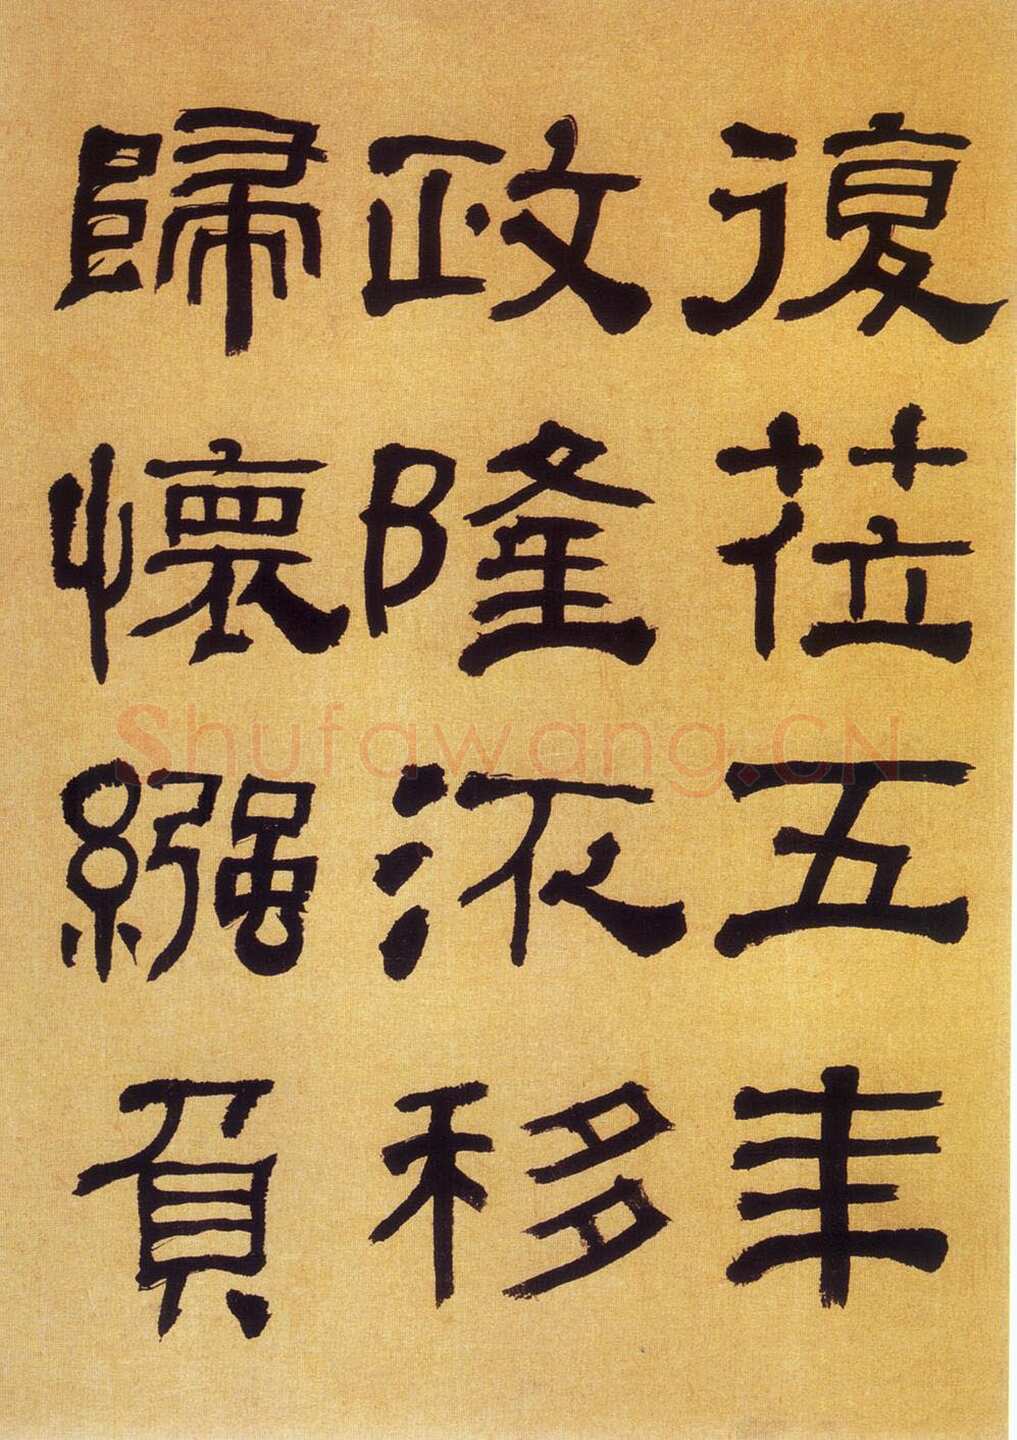 復莅五年
政隆㳅移
歸懷繦負
Shufawang.CN